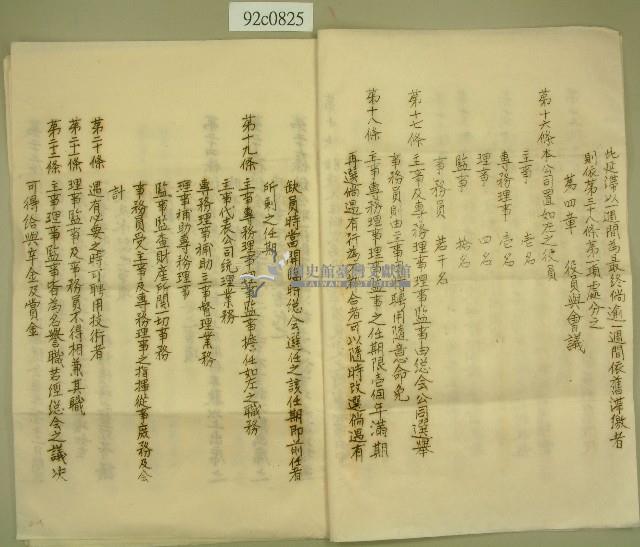 92c0825
此延滞以一週間為最終倘逾一週間依舊滞繳者
則依第三十八條第一項處分之
第四章 役員與會議
第十六條本公司置如左之役員
主事 壱名
專務理事 壱名
理事 四名
監事 拾名
事務員 若干名
第十七條 主事及專務理事理事監事由総会公同選舉
事務員則由主事聘用隨意命免
第十八條 主事專務理事理事監事之任期限壱個年滿期
再選倘遇有行為不
合者可以隨時改選倘遇有
缺員時當開臨時総会選任之該任期即前任者
所剩之任期
第十九條 主事專務理事
監事擔任如左之職務
主事代表公司統理業務
專務理事補助主事管理業務
理事補助專務理事
監事監查財産所関一切事務
事務員受主事及專務理事之指揮從事庶務及会
計
第二十條 遇有必要之時可聘用技術者
第二十一條 理事監事及事務員不得相兼其職
第二十二條 主事理事監事皆為名譽職若經総会之議决
可得給與年金及賞金
國史館臺灣文獻館
TAIWAN HISTORICA